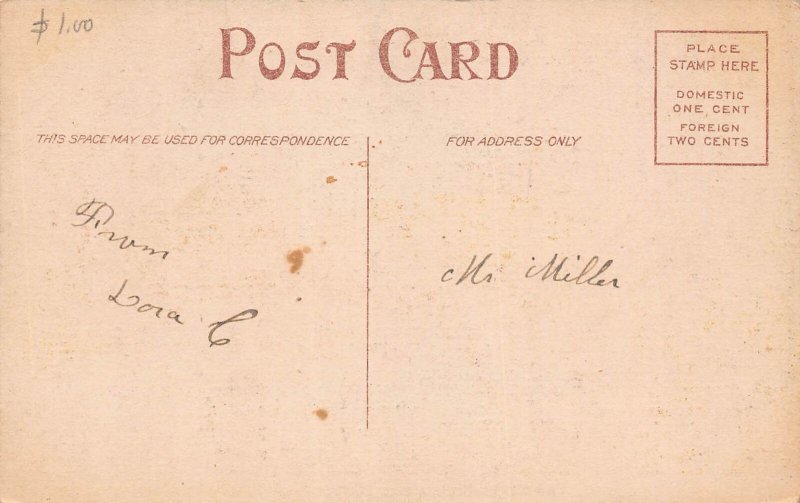 $1.00
POST CARD
PLACE
STAMP HERE
DOMESTIC
ONE CENT
FOREIGN
TWO CENTS
THIS SPACE MAY BE USED FOR CORRESPONDENCE
FOR ADDRESS ONLY
From
Lora C
Mr Miller